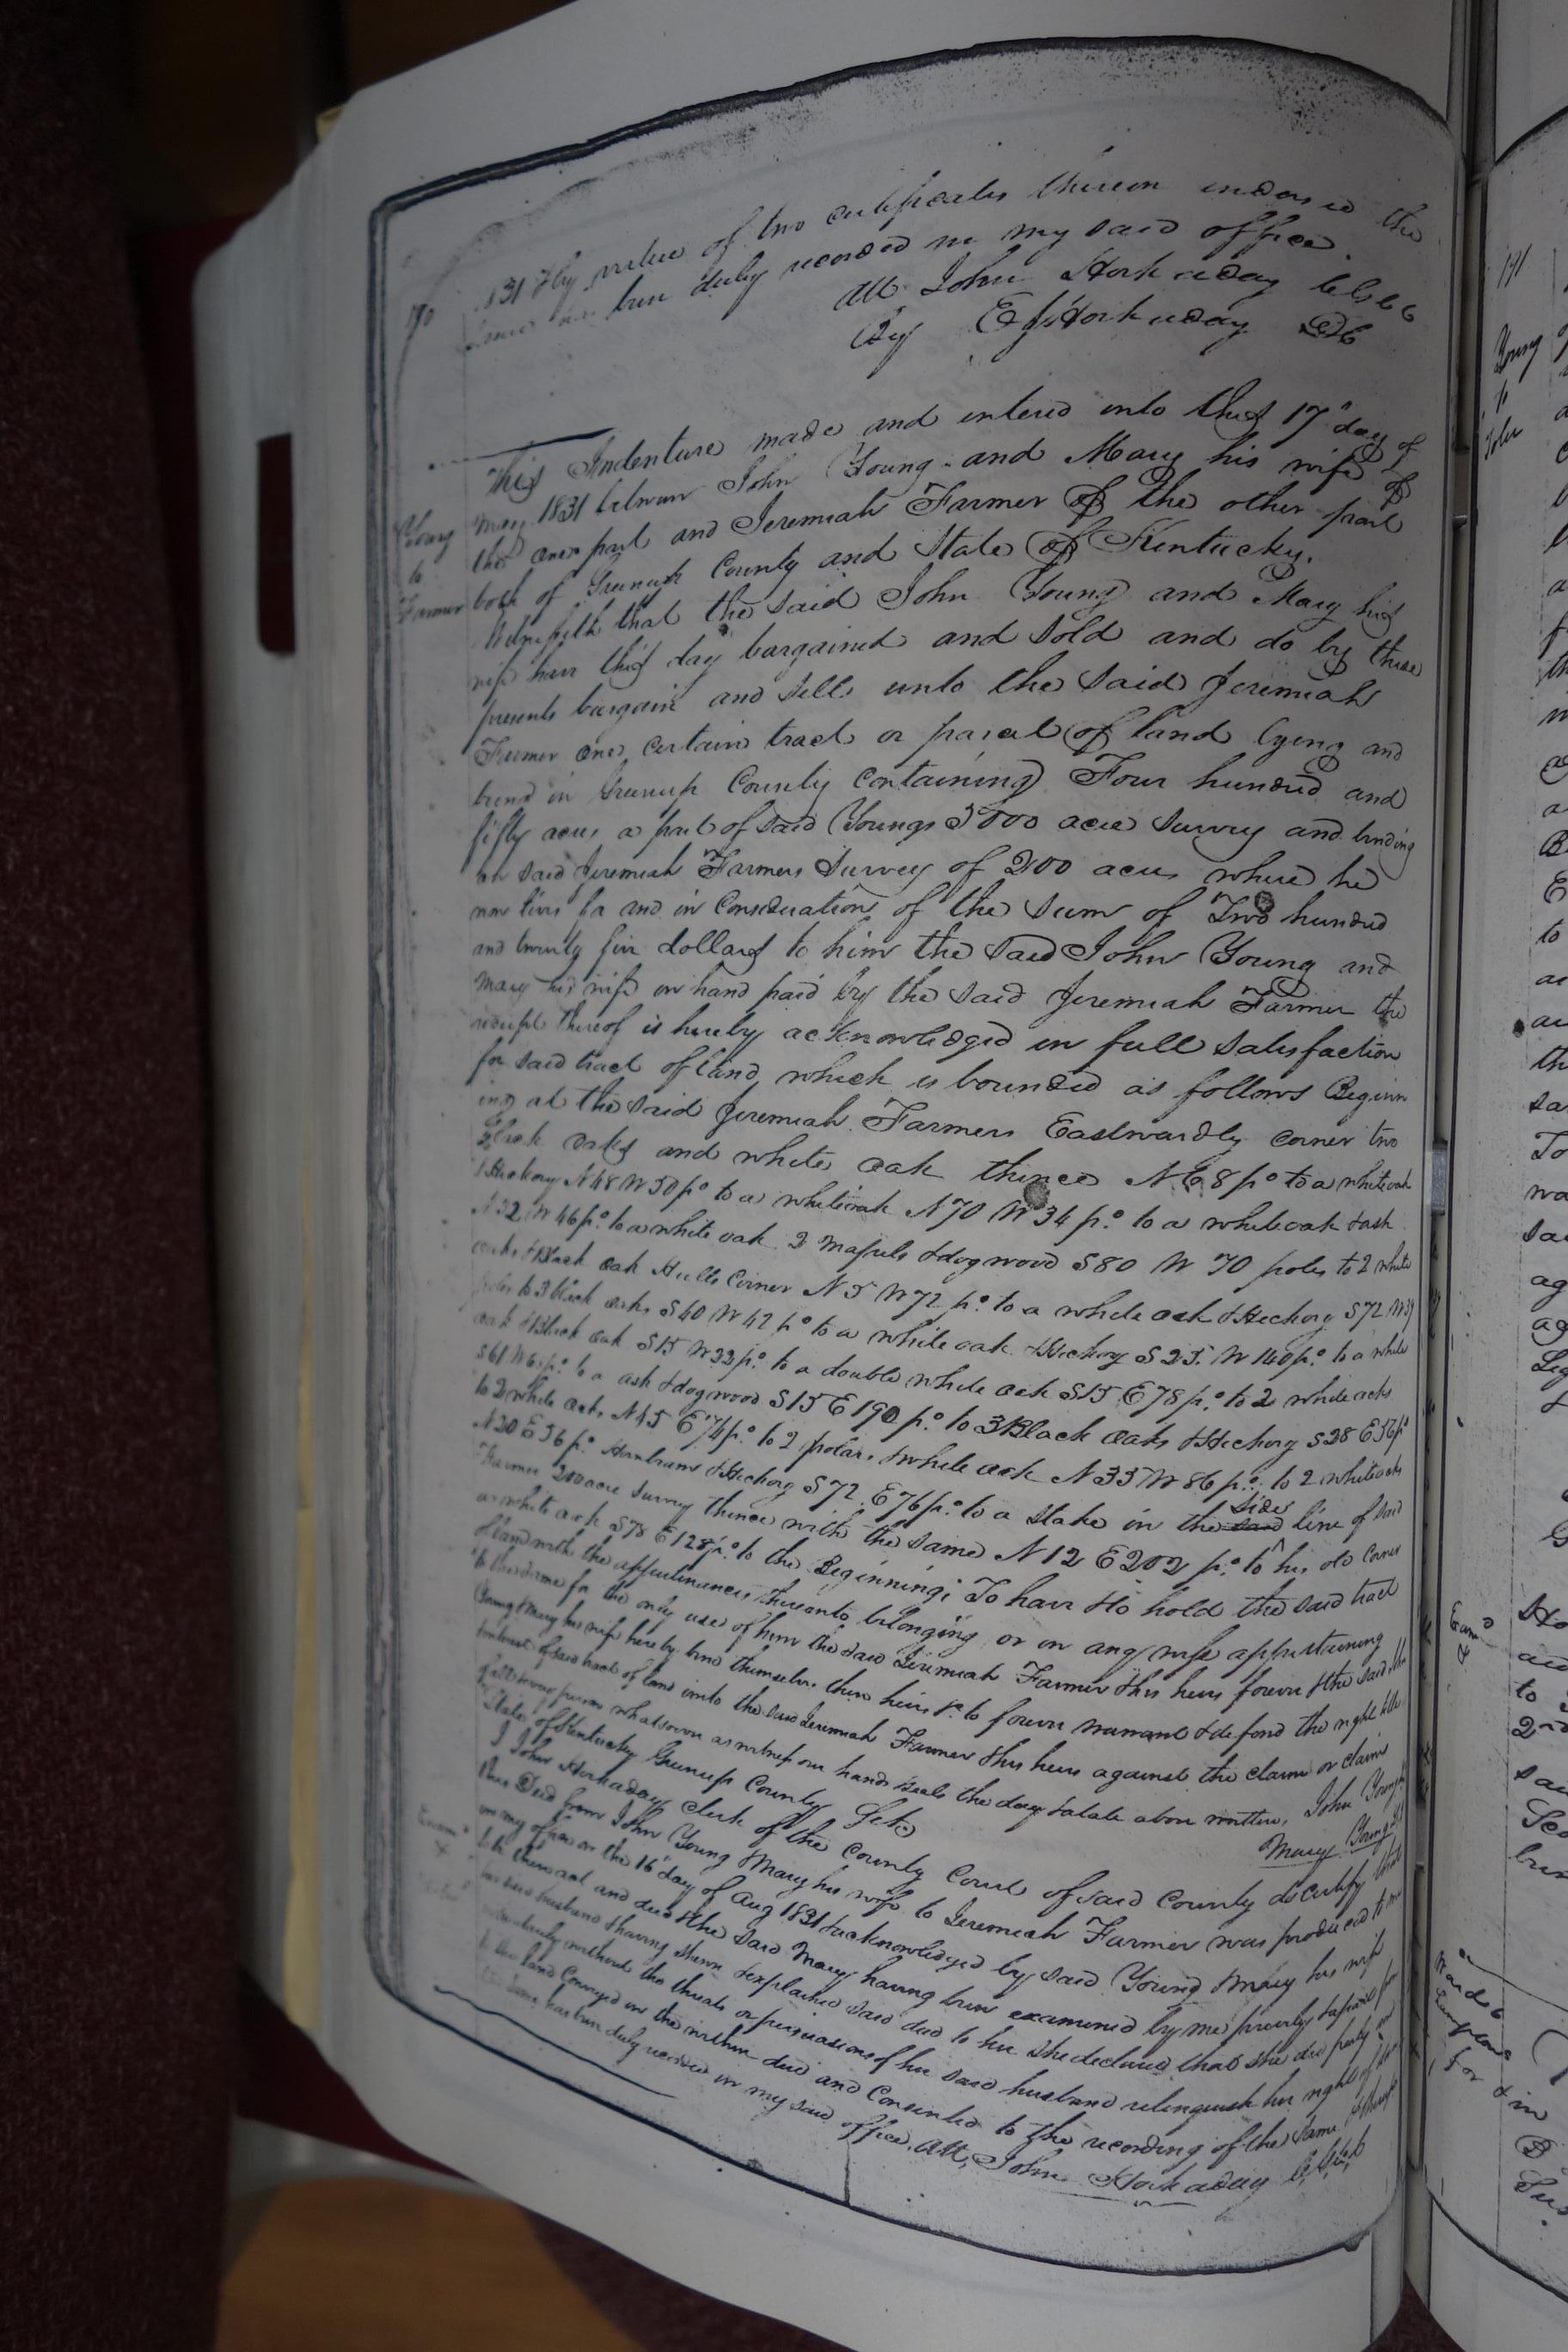 190
1831 & by virtue of two certificates thereon endorsed the
same has been duly recorded in my said office
Att John Hockaday Clk
By E F Hockaday DC
Young
to
Farmer
This Indenture made and entered into this 17th day of
May 1831 between John Young and Mary his wife of
the one part and Jeremiah Farmer of the other part
both of Greenup County and State of Kentucky.
Witnesseth that the said John Young and Mary his
wife have this day bargained and sold and do by these
presents bargain and sell unto the said Jeremiah
Farmer one certain tract or parcel of land lying and
being in Greenup County containing Four hundred and
fifty acres a part of said Youngs 5000 acre Survey and binding
on said Jeremiah Farmers Survey of 200 acres where he
now lives for and in Consideration of the sum of Two hundred
and twenty five dollars to him the said John Young and
Mary his wife in hand paid by the said Jeremiah Farmer the
receipt thereof is hereby acknowledged in full satisfaction
for said tract of land, which is bounded as follows Beginn
ing at the said Jeremiah Farmers Eastwardly corner two
Black oaks and white oak thence N 68 po to a white oak
& Hickory N 48 W 50 po to a whiteoak N 70 W 34 po to a whiteoak & ash
N 32 W 46 po to a white oak 2 mapuls & dogwood S 80 W 70 poles to 2 white
oaks & Black oak Hulls Corner N 5 W 72 po to a white oak & Hickory S 72 W 39
poles to 3 black oaks S 40 W 42 po to a white oak & Hickory S 25 W 140 po to a white
oak & Black oak S 15 W 32 po to a double white oak S 15 E 78 po to 2 white oaks
S 61 W po to a ash & dogwood S 15 E 190 po to 3 Black oaks & Hickory S 28 E 36 po
to 2 white oaks N 45 E 74 po to 2 polars & white oak N 33 W 86 po to 2 whiteoaks
N 20 E 36 po Hornbeam & Hickory S 72 E 76 po to a stake in the side line of said
Farmer 200 acre survey thence with the same N 12 E 202 po to his old corner
a white oak S 78 E 128 po to the Beginning; To have & to hold the said tract
of land with the appurtinances thereonto belonging or in any wise appurtaining
to the same for the only use of him the said Jeremiah Farmer & his heirs forever & the said John
Young & Mary his wife hereby bind themselves their heirs &c to forever warrant & defend the right title
interest of said tract of land unto the said Jeremiah Farmer & his heirs against the claim or claims
of all & every person whatsoever as witness our hands & seals the day & date above written, John Young
Mary Young
State of Kentucky Greenup County Sct
I John Hockaday Clerk of the County Court of said County do certify that
this Deed from John Young & Mary his wife to Jeremiah Farmer was produced to me
in my office on the 16 day of Aug 1831 & acknowledged by said Young & Mary his wife
to be their act and deed & the said Mary having been examined by me privily & apart from
her said husband & having shewn & explained said deed to her she declared that she did freely and
voluntarily without the threats or persuasions of her said husband relinquish her right of dower
to the land Conveyed in the within deed and Consented to the recording of the same &
the same has been duly recorded in my said office. Att, John Hockaday Clk
Exam
191
Young
to